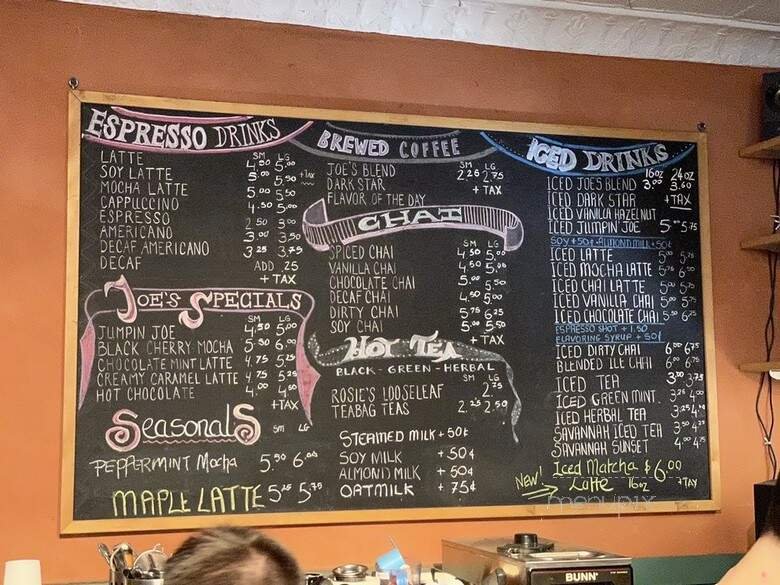 ESPRESSO DRINKS
SM LG
LATTE 4.50 5.00
SOY LATTE 5.00 5.50 +tax
MOCHA LATTE 5.00 5.50
CAPPUCCINO 4.50 5.00
ESPRESSO 2.50 3.00
AMERICANO 3.00 3.50
DECAF AMERICANO 3.25 3.75
DECAF ADD .25
+ TAX
JOE'S SPECIALS
SM LG
JUMPIN JOE 4.50 5.00
BLACK CHERRY MOCHA 5.50 6.00
CHOCOLATE MINT LATTE 4.75 5.25
CREAMY CARAMEL LATTE 4.75 5.25
HOT CHOCOLATE 4.00 4.50
+TAX
SEASONALS SM LG
PEPPERMINT Mocha 5.50 6.00
MAPLE LATTE 5.25 5.75
BREWED COFFEE
SM LG
JOE'S BLEND 2.25 2.75
DARK STAR
+ TAX
FLAVOR OF THE DAY
CHAI
SM LG
SPICED CHAI 4.50 5.00
VANILLA CHAI 4.50 5.00
CHOCOLATE CHAI 5.00 5.50
DECAF CHAI 4.50 5.00
DIRTY CHAI 5.75 6.25
SOY CHAI 5.00 5.50
+ TAX
HOT TEA
BLACK - GREEN - HERBAL
SM LG
ROSIE'S LOOSELEAF 2.75
TEABAG TEAS 2.25 2.50
STEAMED MILK + 50¢
SOY MILK + 50¢
ALMOND MILK + 50¢
OATMILK + 75¢
ICED DRINKS
16oz 24oz
ICED JOE'S BLEND 3.00 3.60
ICED DARK STAR +TAX
ICED VANILLA HAZELNUT
ICED JUMPIN' JOE 5.00 5.75
SOY +50¢ ALMOND MILK +50¢
ICED LATTE 5.00 5.75
ICED MOCHA LATTE 5.75 6.00
ICED CHAI LATTE 5.00 5.75
ICED VANILLA CHAI 5.00 5.75
ICED CHOCOLATE CHAI 5.50 6.25
ESPRESSO SHOT + 1.50
FLAVORING SYRUP + 50¢
ICED DIRTY CHAI 6.00 6.75
BLENDED ICE CHAI 6.00 6.75
ICED TEA 3.00 3.75
ICED GREEN MINT 3.25 4.00
ICED HERBAL TEA 3.25 4.00
SAVANNAH ICED TEA 3.50 4.25
SAVANNAH SUNSET 4.00 4.75
NEW! Iced Matcha $6.00
Latte 16oz +TAX
menupix
BUNN